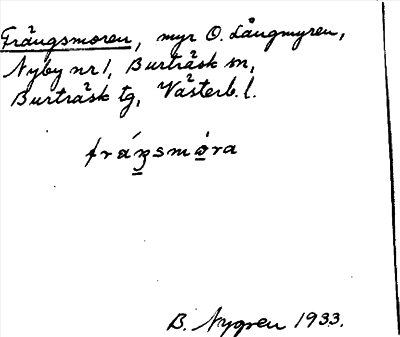 Trångsmoren, myr O. Långmyren,
Nyby nr 1, Burträsk sn,
Burträsk tg, Västerb. l.
B. Nygren 1933.